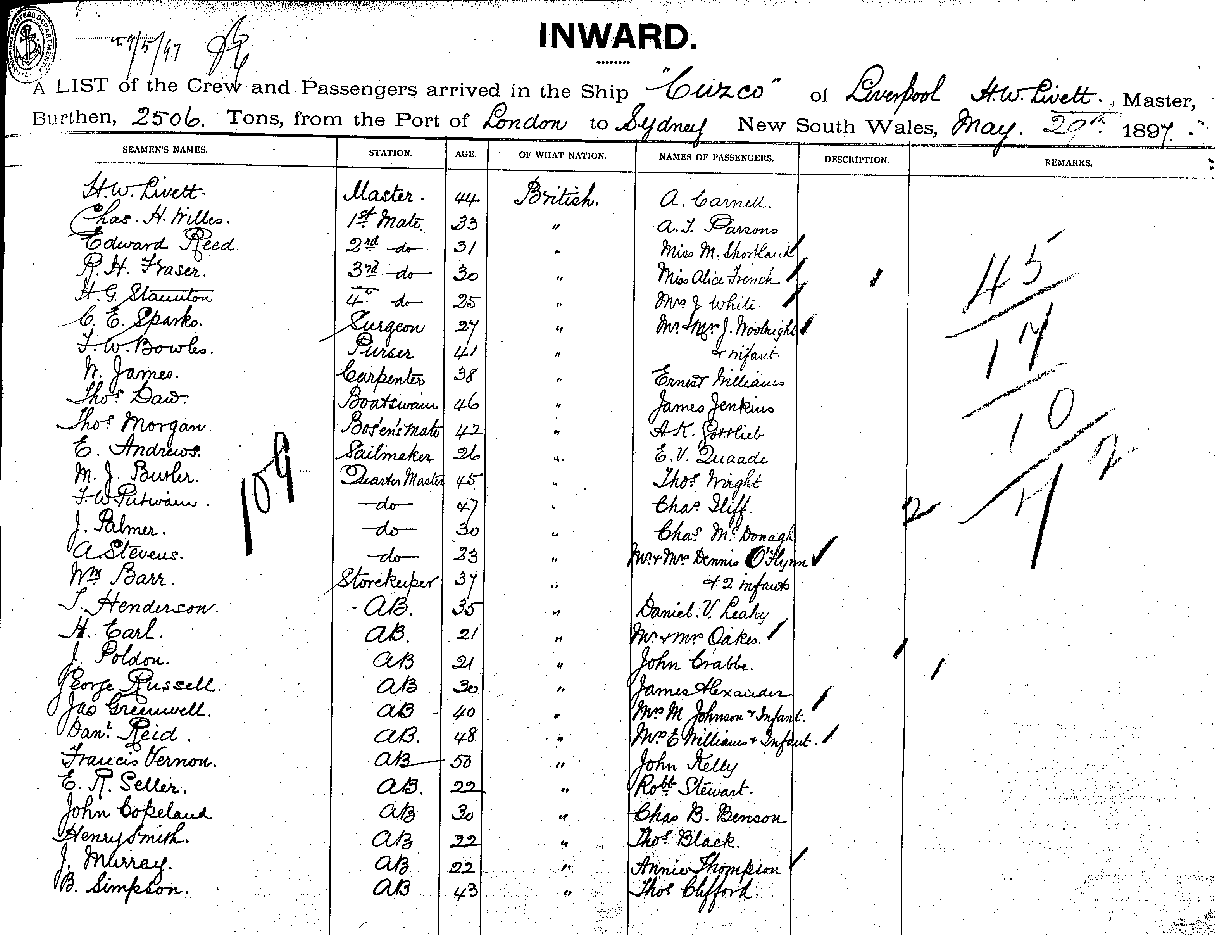 29/5/97
INWARD.
A LIST of the Crew and Passengers arrived in the Ship "Cuzco" of Liverpool H.W. Livett., Master,
Burthen, 2506. Tons, from the Port of London to Sydney New South Wales, May. 29th 1897.
SEAMEN'S NAMES. STATION. AGE. OF WHAT NATION. NAMES OF PASSENGERS. DESCRIPTION. REMARKS.
H.W. Livett. Master. 44 British. A. Carnell.
Chas. H. Willes. 1st Mate. 33 " A. J. Parsons
Edward Reed 2nd do 31 " Miss M.
R. H. Fraser. 3rd do 30 " Miss Alice French
H. G. Staunton 4th do 25 " Mrs J White
C. E. Sparks. Surgeon 27 " Mr & Mrs J. Woolnight
F. W. Bowles. Purser 41 " & infant
N. James. Carpenter 38 " Ernest Williams
Thos Daw. Boatswain 46 " James Jenkins
Thos Morgan. Bos'en's Mate 42 " A K. Gottlieb
E. Andrews. Sailmaker 26 " E. V. Quaade
M. J. Butler. Quarter Master 45 " Thos Wright
F. W. Putwain. do 47 " Chas Iliff.
J. Palmer. do 30 " Chas McDonagh
A Stevens. do 23 " Mr & Mrs Dennis O'Flynn
Wm Barr. Storekeeper 37 " & 2 infants
J. Henderson AB. 35 " Daniel. V. Leahy
H. Earl. AB. 21 " Mr & Mrs Oakes.
J. Poldon. AB 21 " John Crabbe.
George Russell. AB 30 " James Alexander
Jas Greenwell. AB 40 " Mrs M Johnson & Infant.
Danl Reid. AB. 48 " Mrs E Williams & Infant.
Francis Vernon. AB 50 " John Kelly
E. R. Seller. AB. 22 " Robt Stewart.
John Copeland AB 30 " Chas B. Benson
Henry Smith. AB 22 " Thos Black.
J. Murray. AB 22 " Annie Thompson
B. Simpson. AB 43 " Thos Clifford
109
45
17
10
2
2